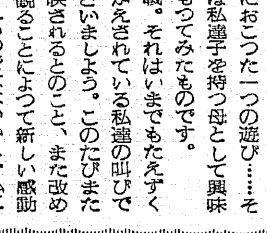 におこつた一つの遊び……そ
は私達子を持つ母として興味
もつてみたものです。
戦。それはいまでもたえずく
かえされている私達の叫びで
といいましよう。このたびまた
映されるとのこと、また改め
観ることによつて新しい感動